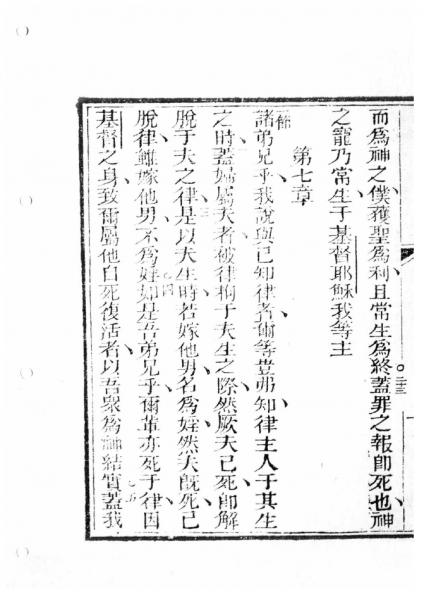 而為神之僕獲聖為利且常生為終○二十三蓋罪之報即死也神
之寵乃常生于基督耶穌我等主
第七章
一節諸弟兄乎我說與已知律者爾等豈弗知律主人于其生
之時二蓋婦屬夫者被律拘于夫生之際然厥夫已死即解
脫于夫之律三是以夫生時若嫁他男名為婬然夫既死已
脫律雖嫁他男不為婬四如是吾弟兄乎爾輩亦死于律因
基督之身致爾屬他自死復活者以吾眾為神結實五蓋我